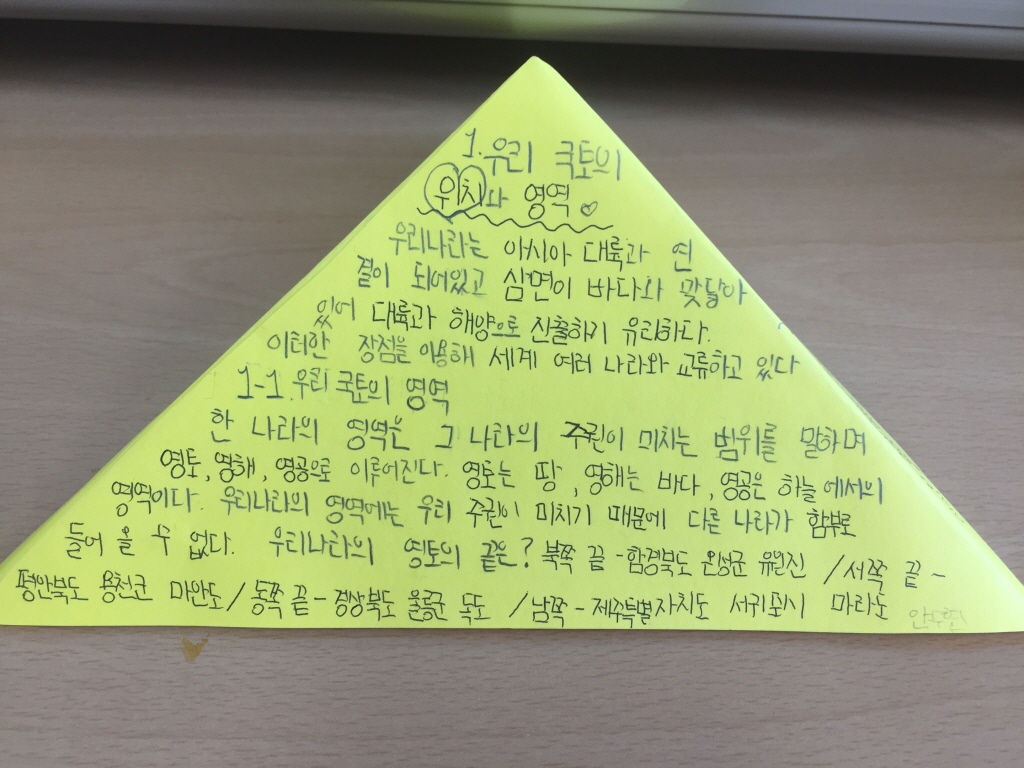 1. 우리 국토의
위치와 영역♡
우리나라는 아시아 대륙과 연
결이 되어있고 삼면이 바다와 맞닿아
있어 대륙과 해양으로 진출하기 유리하다.
이러한 장점을 이용해 세계 여러 나라와 교류하고 있다
1-1. 우리 국토의 영역
한 나라의 영역은 그 나라의 주권이 미치는 범위를 말하며
영토, 영해, 영공으로 이루어진다. 영토는 땅, 영해는 바다, 영공은 하늘에서의
영역이다. 우리나라의 영역에는 우리 주권이 미치기 때문에 다른 나라가 함부로
들어 올 수 없다. 우리나라의 영토의 끝은? 북쪽 끝 - 함경북도 온성군 유원진 / 서쪽 끝 -
평안북도 용천군 마안도 / 동쪽 끝 - 경상북도 울릉군 독도 / 남쪽 - 제주특별자치도 서귀포시 마라도